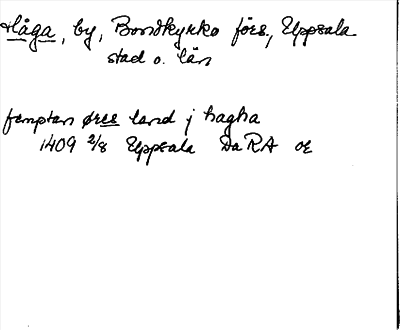 Håga, by, Bondkyrko förs., Uppsala
stad o. län
fæmptan øres land j hagha
1409 2/8 Uppsala DaRA or